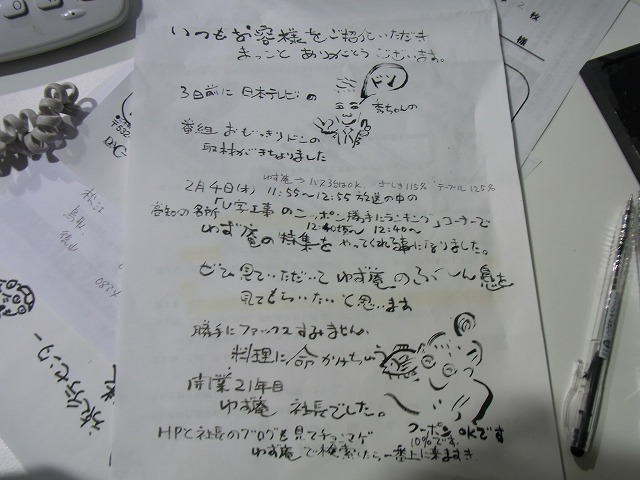 いつもお客様をご紹介いただき
まっこと ありがとうございます。
ドン
3日前に 日本テレビの
杏ちゃんの
番組 おもいっきりドンの
取材がきちょりました
ゆず庵→バス35台OK
115% テーブル125%
2月4日(水) 11:55～12:55 放送の中の
高知の名所 「U字工事のニッポン勝手にランキング」コーナーで
12:40頃～ 12:40～
ゆず庵の特集を やってくれる事になりました。
ぜひ見ていただいて ゆず庵のふくしん魚を
見てもらいたいと思います
勝手にファックスすみません。
料理に命かけちゅう
開業21年目
ゆず庵 社長でした。
クーポンOKです
10%です。
HPと社長のブログも見てチョンマゲ
ゆず庵で検索したら一番上に来ますき
2枚
様
松江
鳥取
岡山
0834